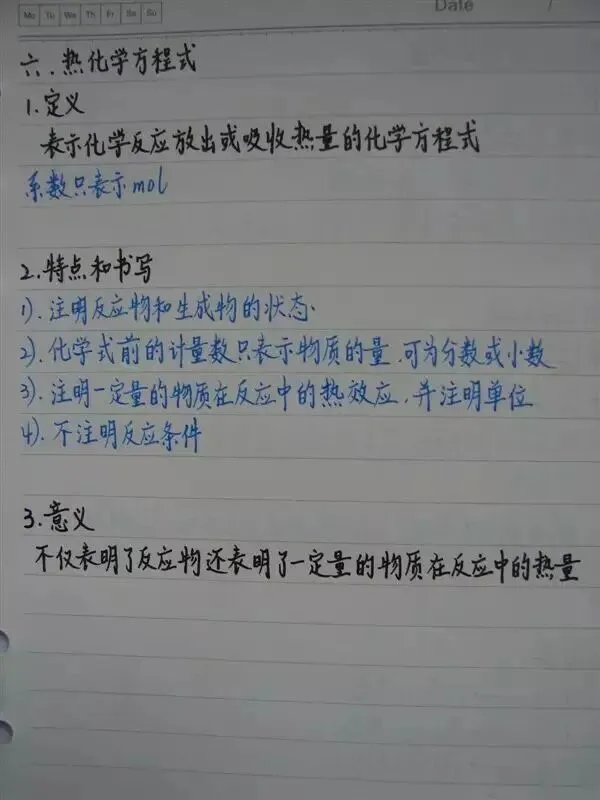 Mo Tu We Th Fr Sa Su
Date /
六.热化学方程式
1.定义
表示化学反应放出或吸收热量的化学方程式
系数只表示mol
2.特点和书写
1).注明反应物和生成物的状态.
2).化学式前的计量数只表示物质的量.可为分数或小数
3).注明一定量的物质在反应中的热效应.并注明单位
4).不注明反应条件
3.意义
不仅表明了反应物还表明了一定量的物质在反应中的热量